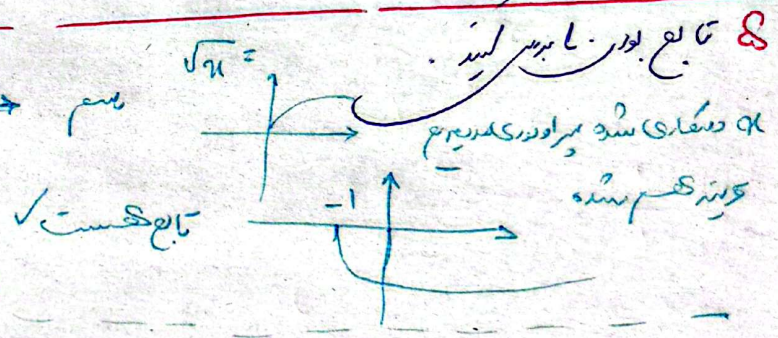 تابع بودن را بررسی کنید.
√x =
x دستکاری شده پس اول
رسم
قرینه هم شده
-1
تابع هست ✓